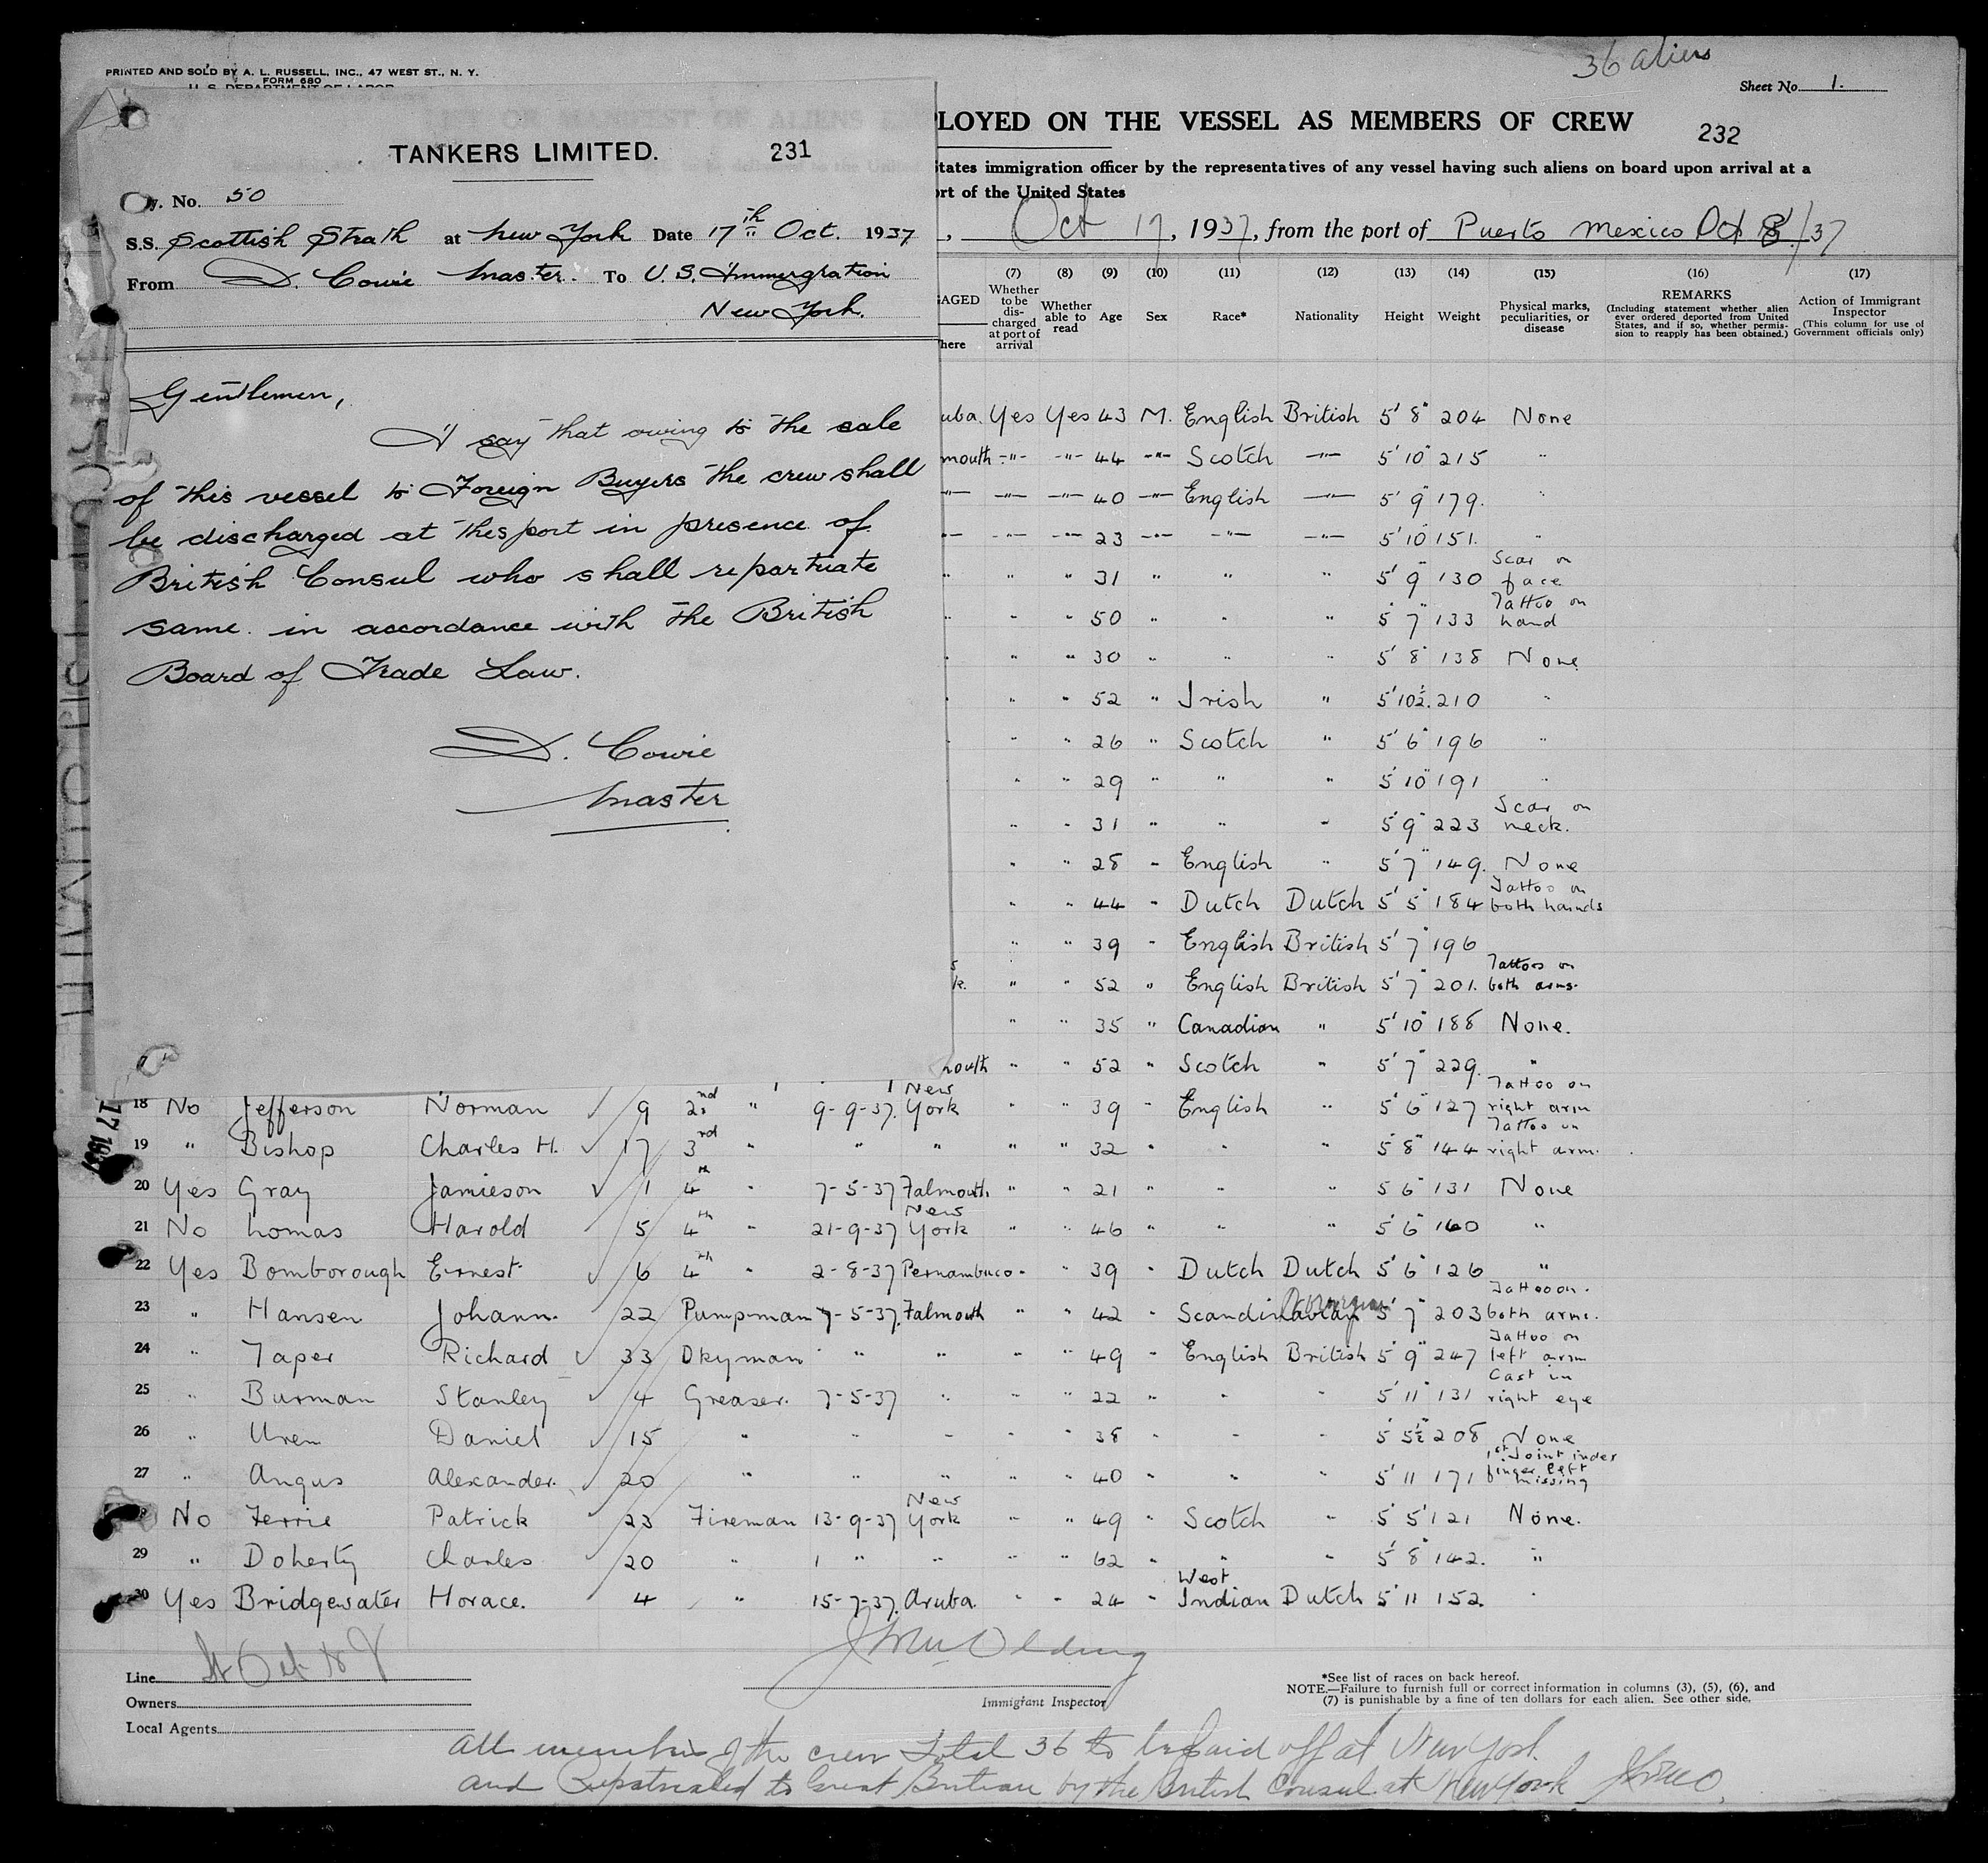 PRINTED AND SOLD BY A. L. RUSSELL, INC., 47 WEST ST., N. Y.
FORM 680
U. S. DEPARTMENT OF LABOR
36 aliens
Sheet No. 1.
LOYED ON THE VESSEL AS MEMBERS OF CREW
232
States immigration officer by the representatives of any vessel having such aliens on board upon arrival at a
ort of the United States
, Oct 17, 1937, from the port of Puerto Mexico Oct 8/37
TANKERS LIMITED. 231
y. No. 50
S.S. Scottish Strath at New York Date 17th Oct. 1937
From D. Cowie Master. To U.S. Immigration
New York.
Gentlemen,
I say that owing to the sale
of this vessel to Foreign Buyers the crew shall
be discharged at this port in presence of
British Consul who shall repartuate
same. in accordance with the British
Board of Trade Law.
D. Cowie
Master
(7) (8) (9) (10) (11) (12) (13) (14) (15) (16) (17)
GAGED
here
Whether to be dis-charged at port of arrival
Whether able to read
Age
Sex
Race*
Nationality
Height
Weight
Physical marks, peculiarities, or disease
REMARKS
(Including statement whether alien ever ordered deported from United States, and if so, whether permis-sion to reapply has been obtained.)
Action of Immigrant Inspector
(This column for use of Government officials only)
uba. Yes Yes 43 M. English British 5' 8" 204 None
mouth -"- -"- 44 -"- Scotch -"- 5' 10" 215 "
-"- -"- -"- 40 -"- English -"- 5' 9" 179. "
-"- -"- -"- 23 -"- -"- -"- 5' 10" 151. "
" " " 31 " " " 5' 9" 130 Scar on face
" " " 50 " " " 5' 7" 133 Tattoo on hand
" " " 30 " " " 5' 8" 138 None
" " " 52 " Irish " 5' 10½. 210 "
" " " 26 " Scotch " 5' 6" 196 "
" " 29 " " " 5' 10" 191 "
" " 31 " " " 5' 9" 223 Scar on neck.
" " 28 " English " 5' 7" 149. None
" " 44 " Dutch Dutch 5' 5" 184 Tattoo on both hands
" " 39 " English British 5' 7" 196
k. " " 52 " English British 5' 7" 201. Tattoos on both arms.
" " 35 " Canadian " 5' 10" 188 None.
mouth " " 52 " Scotch " 5' 7" 229. "
18 No Jefferson Norman 9 2nd " 9-9-37. New York " " 39 " English " 5' 6" 127 Tattoo on right arm
19 " Bishop Charles H. 17 3rd " " " " " 32 " " " 5' 8" 144 Tattoo on right arm.
20 Yes Gray Jamieson 1 4th " 7-5-37 Falmouth " " 21 " " " 5' 6" 131 None
21 No Lomas Harold 5 4th " 21-9-37 New York " " 46 " " " 5' 6" 160 "
22 Yes Bomborough Ernest 6 4th " 2-8-37 Pernambuco " " 39 " Dutch Dutch 5' 6" 126 "
23 " Hansen Johann. 22 Pumpman 7-5-37. Falmouth " " 42 " Scandinavian 5' 7" 203 Tattoo on both arms.
24 " Taper Richard 33 Dkyman " " " " 49 " English British 5' 9" 247 Tattoo on left arm
25 " Burman Stanley 4 Greaser. 7-5-37 " " " 22 " " " 5' 11" 131 Cast in right eye
26 " Uren Daniel 15 " " " " " 38 " " " 5' 5½" 208 None
27 " Angus Alexander. 20 " " " " " 40 " " " 5' 11 171 1st Joint index finger left missing
No Ferrie Patrick 23 Fireman 13-9-37 New York " " 49 " Scotch " 5' 5" 121 None.
29 " Doherty Charles 20 " 1 " " " " 62 " " " 5' 8" 142. "
30 Yes Bridgewater Horace. 4 " 15-7-37. Aruba. " " 24 " West Indian Dutch 5' 11 152. "
17 1937
Line
Owners
Local Agents
Immigrant Inspector
*See list of races on back hereof.
NOTE.—Failure to furnish full or correct information in columns (3), (5), (6), and
(7) is punishable by a fine of ten dollars for each alien. See other side.
All members of the crew total 36 to be paid off at New York.
and Repatriated to Great Britain by the British Consul at New York